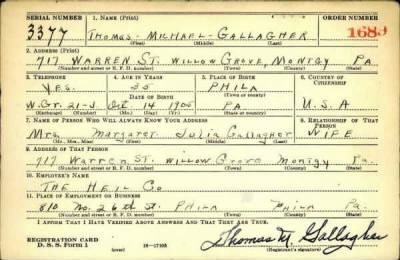 SERIAL NUMBER 1. NAME (Print) ORDER NUMBER
3377 THOMAS - MICHAEL - GALLAGHER 1689
(First) (Middle) (Last)
2. ADDRESS (Print)
717 WARREN ST. WILLOW GROVE, MONTGY PA
(Number and street or R. F. D. number) (Town) (County) (State)
3. TELEPHONE 4. AGE IN YEARS 5. PLACE OF BIRTH 6. COUNTRY OF CITIZENSHIP
Yes. 35 PHILA
DATE OF BIRTH (Town or county)
W. Gr. 21-J Oct 14 1905 PA U.S.A
(Exchange) (Number) (Mo.) (Day) (Yr.) (State or country)
7. NAME OF PERSON WHO WILL ALWAYS KNOW YOUR ADDRESS 8. RELATIONSHIP OF THAT PERSON
Mrs. Margaret Julia Gallagher WIFE
(Mr., Mrs., Miss) (First) (Middle) (Last)
9. ADDRESS OF THAT PERSON
717 Warren St. WILLOW Grove Montgy Pa.
(Number and street or R. F. D. number) (Town) (County) (State)
10. EMPLOYER'S NAME
THE HEIL Co
11. PLACE OF EMPLOYMENT OR BUSINESS
810 No. 26th St PHILA PHILA Pa.
(Number and street or R. F. D. number) (Town) (County) (State)
I AFFIRM THAT I HAVE VERIFIED ABOVE ANSWERS AND THAT THEY ARE TRUE.
REGISTRATION CARD
D. S. S. Form 1 (over) 16—17105 Thomas M. Gallagher
(Registrant's signature)